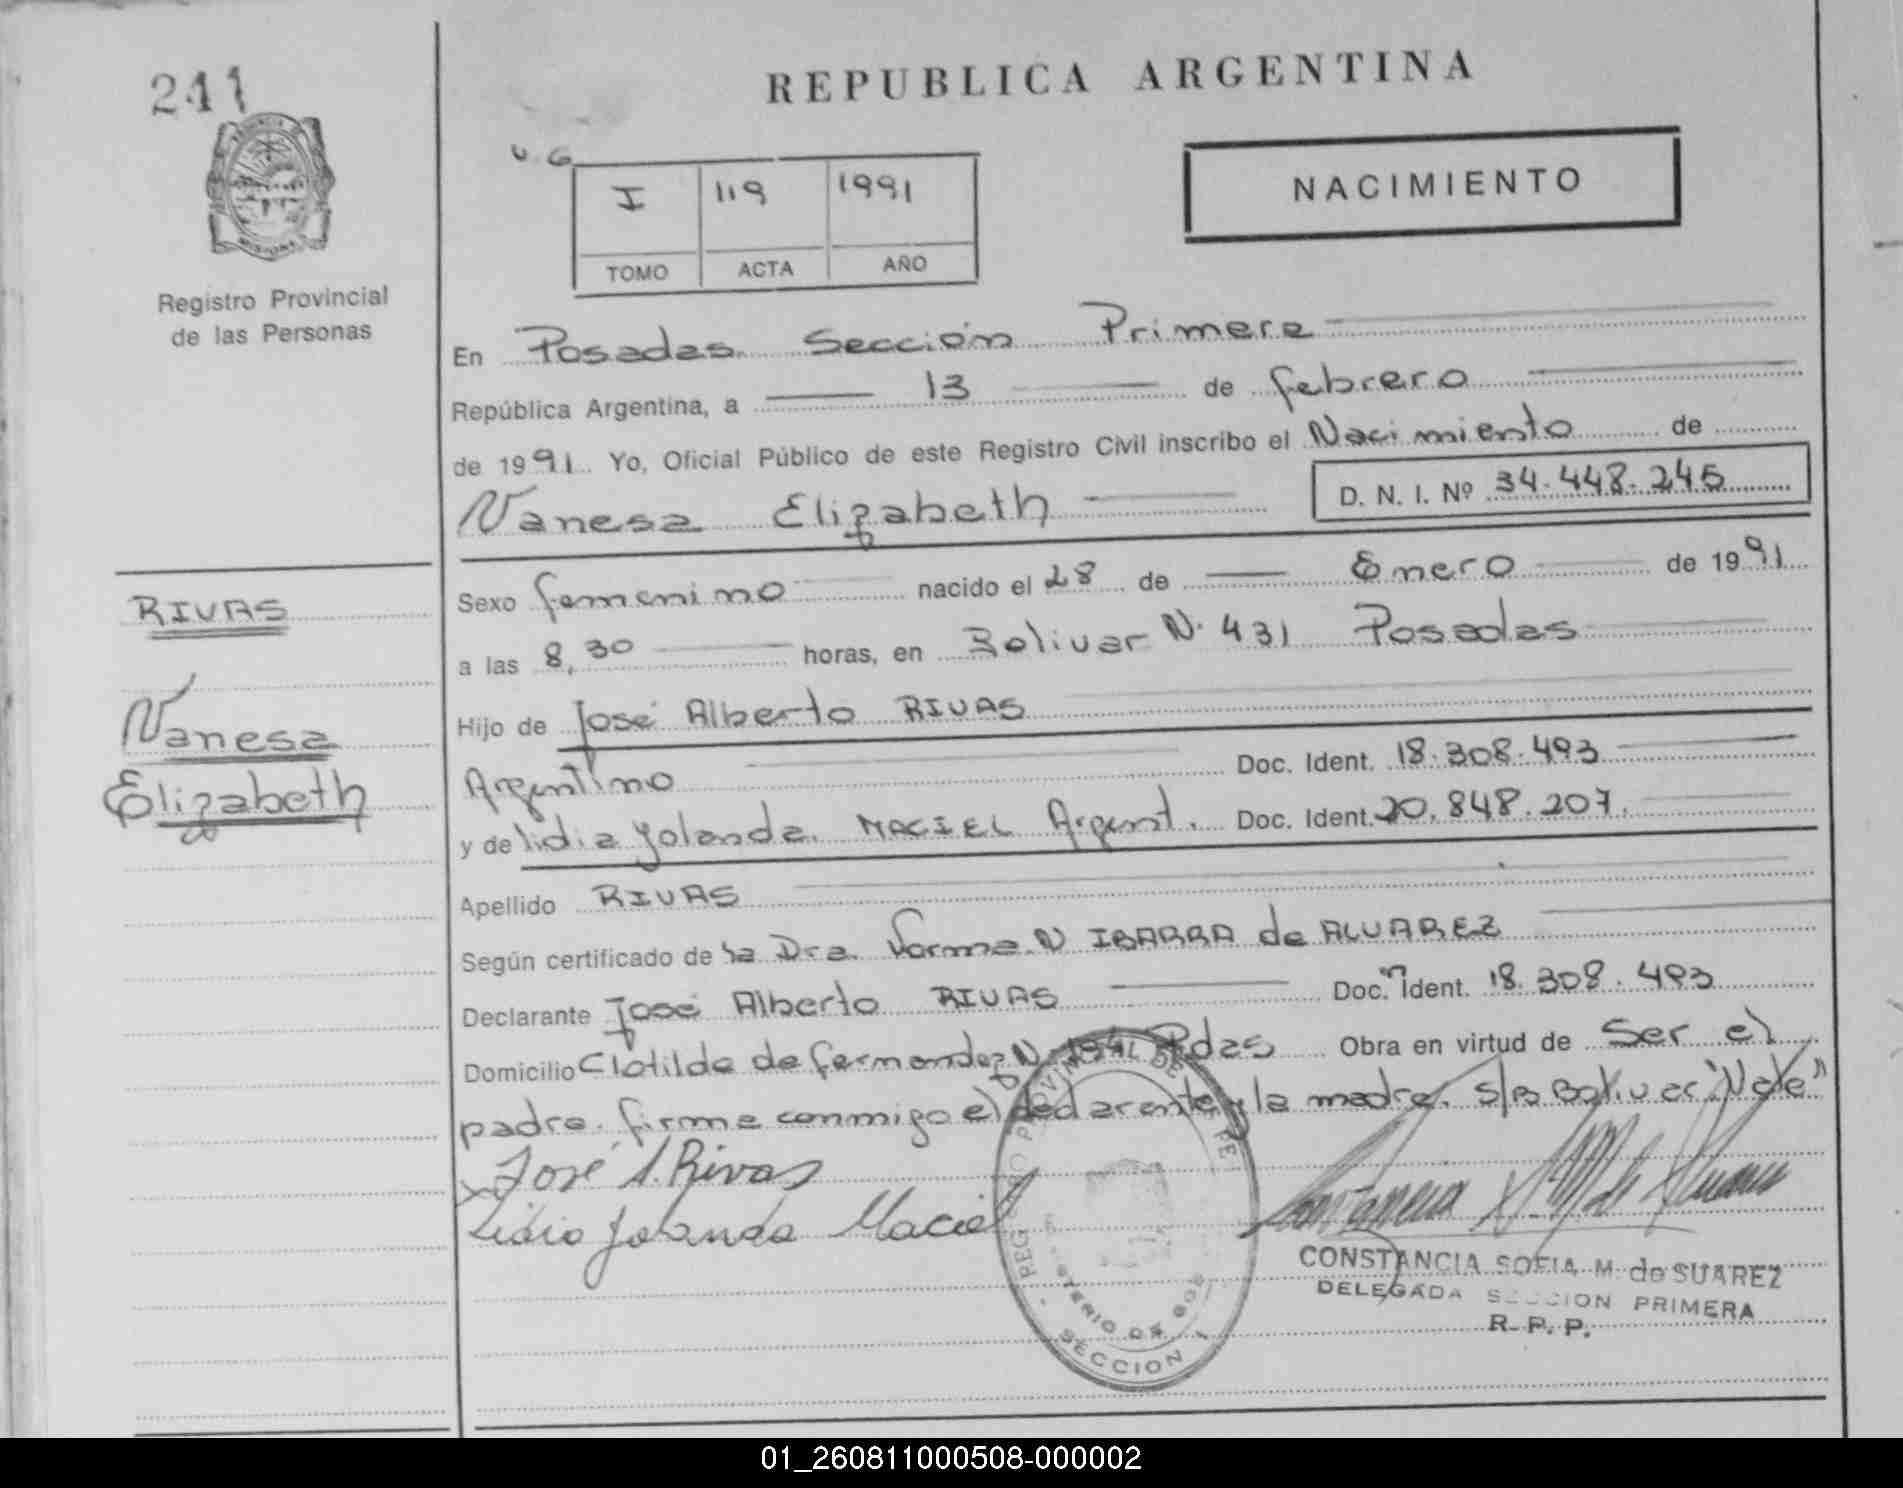 241
REPUBLICA ARGENTINA
NACIMIENTO
U.G
I 119 1991
TOMO ACTA AÑO
Registro Provincial
de las Personas
En Posadas. Sección Primera
República Argentina, a 13 de febrero
de 1991. Yo, Oficial Público de este Registro Civil inscribo el Nacimiento de
Vanesa Elizabeth D. N. I. Nº 34.448.245
RIVAS
Vanesa
Elizabeth
Sexo femenino nacido el 28 de Enero de 1991
a las 8,30 horas, en Bolivar N. 431 Posadas
Hijo de José Alberto RIVAS
Argentino Doc. Ident. 18.308.493
y de lidia Yolanda. MACIEL Argent. Doc. Ident. 20.848.207.
Apellido RIVAS
Según certificado de la Dra. Norma. N IBARRA de ALVAREZ
Declarante José Alberto RIVAS Doc. Ident. 18.308.493
Domicilio Clotilde de fernandez N Pdas Obra en virtud de Ser el
padre. firma conmigo el declarante y la madre. S/B Bolivar "Vale"
José A. Rivas
Lidia Yolanda Maciel
CONSTANCIA SOFIA M. de SUAREZ
DELEGADA SECCION PRIMERA
R. P. P.
SECCION 1
01_260811000508-000002